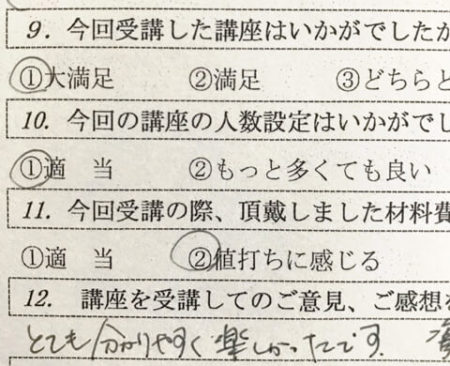 9. 今回受講した講座はいかがでしたか
①大満足 ②満足 ③どちらと
10. 今回の講座の人数設定はいかがでし
①適 当 ②もっと多くても良い
11. 今回受講の際、頂戴しました材料費
①適 当 ②値打ちに感じる
12. 講座を受講してのご意見、ご感想を
とても分かりやすく楽しかったです。